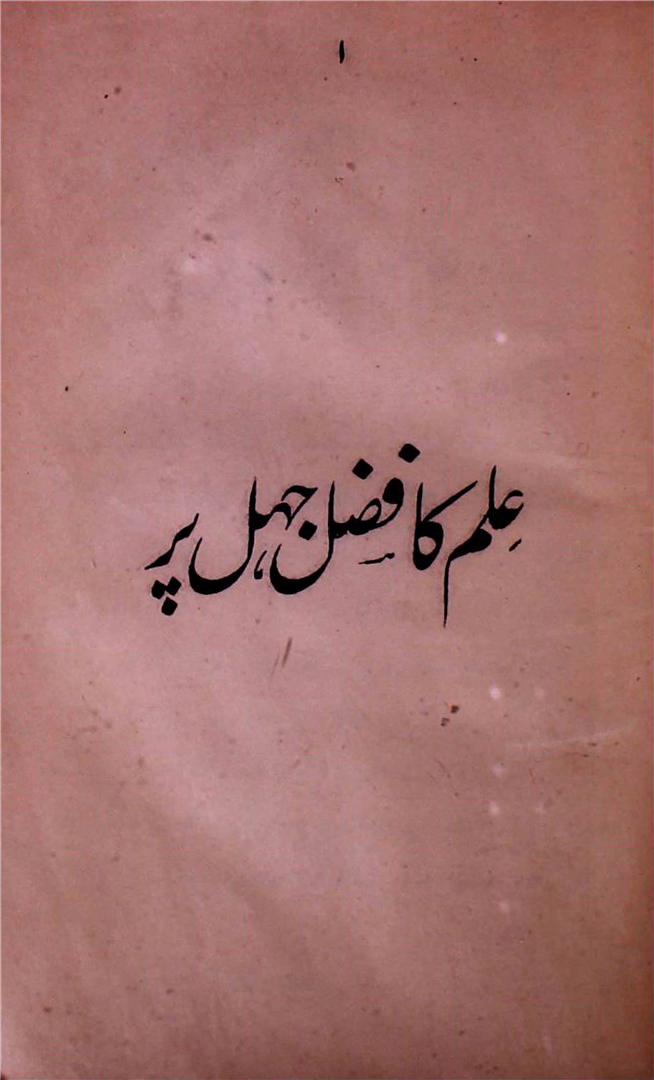 ۱
عِلم کا فضِل جہل پر